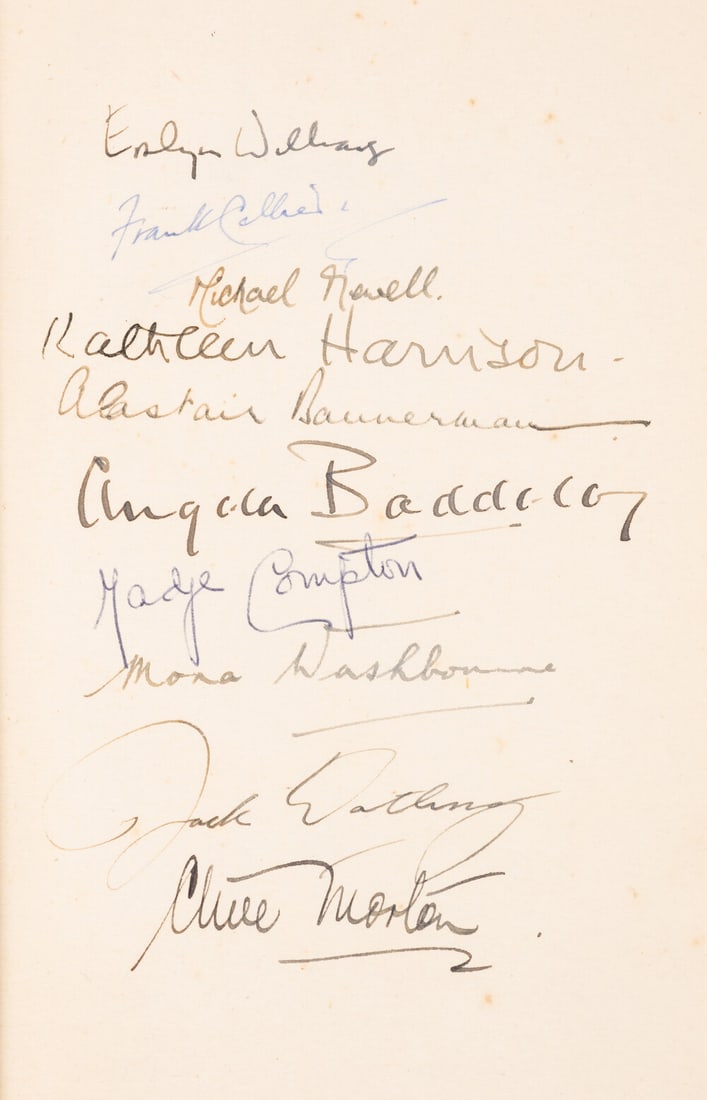 Evelyn Williams
Frank Cellier.
Michael Newell.
Kathleen Harrison -
Alastair Bannerman
Angela Baddeley
Madge Compton
Mona Washbourne
Jack Watling
Clive Morton.